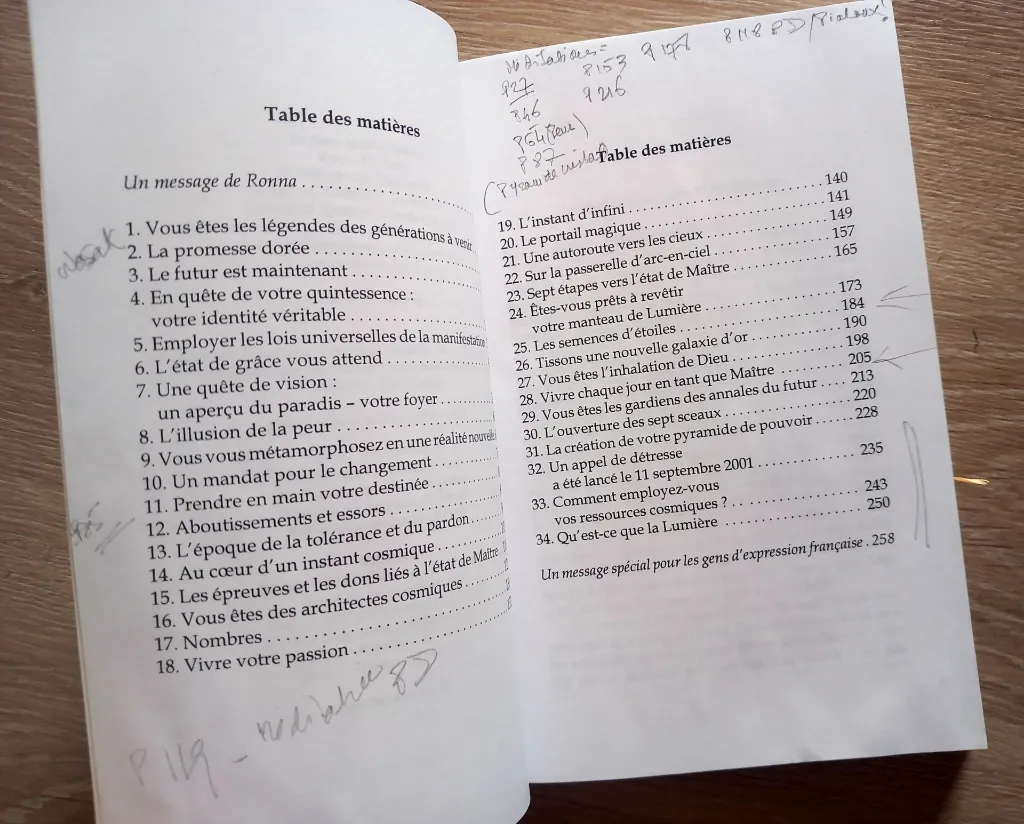 Table des matières
Un message de Ronna . . . . . . . . . . . . . . . . . . . . . . . .
1. Vous êtes les légendes des générations à venir
2. La promesse dorée . . . . . . . . . . . . . . . . . . . . .
3. Le futur est maintenant . . . . . . . . . . . . . . . . .
4. En quête de votre quintessence :
votre identité véritable . . . . . . . . . . . . . . . . .
5. Employer les lois universelles de la manifestation
6. L'état de grâce vous attend . . . . . . . . . . . . .
7. Une quête de vision :
un aperçu du paradis – votre foyer . . . . . . . .
8. L'illusion de la peur . . . . . . . . . . . . . . . . . . . .
9. Vous vous métamorphosez en une réalité nouvelle
10. Un mandat pour le changement . . . . . . . . .
11. Prendre en main votre destinée . . . . . . . . .
12. Aboutissements et essors . . . . . . . . . . . . . .
13. L'époque de la tolérance et du pardon . . . . .
14. Au cœur d'un instant cosmique . . . . . . . . .
15. Les épreuves et les dons liés à l'état de Maître .
16. Vous êtes des architectes cosmiques . . . . . . .
17. Nombres . . . . . . . . . . . . . . . . . . . . . . . . . . . .
18. Vivre votre passion . . . . . . . . . . . . . . . . . . .
P 119 -
Méditations =
P27
P153
P46
P54 (Peur)
P87
Table des matières
19. L'instant d'infini . . . . . . . . . . . . . . . . . . . . . . . . 140
20. Le portail magique . . . . . . . . . . . . . . . . . . . . . . 141
21. Une autoroute vers les cieux . . . . . . . . . . . . . . . 149
22. Sur la passerelle d'arc-en-ciel . . . . . . . . . . . . . . 157
23. Sept étapes vers l'état de Maître . . . . . . . . . . . . 165
24. Êtes-vous prêts à revêtir
votre manteau de Lumière . . . . . . . . . . . . . . . . 173
25. Les semences d'étoiles . . . . . . . . . . . . . . . . . . . 184
26. Tissons une nouvelle galaxie d'or . . . . . . . . . . . 190
27. Vous êtes l'inhalation de Dieu . . . . . . . . . . . . . 198
28. Vivre chaque jour en tant que Maître . . . . . . . . 205
29. Vous êtes les gardiens des annales du futur . . . . 213
30. L'ouverture des sept sceaux . . . . . . . . . . . . . . . 220
31. La création de votre pyramide de pouvoir . . . . . 228
32. Un appel de détresse
a été lancé le 11 septembre 2001 . . . . . . . . . . . . 235
33. Comment employez-vous
vos ressources cosmiques ? . . . . . . . . . . . . . . . 243
34. Qu'est-ce que la Lumière . . . . . . . . . . . . . . . . . 250
Un message spécial pour les gens d'expression française . 258